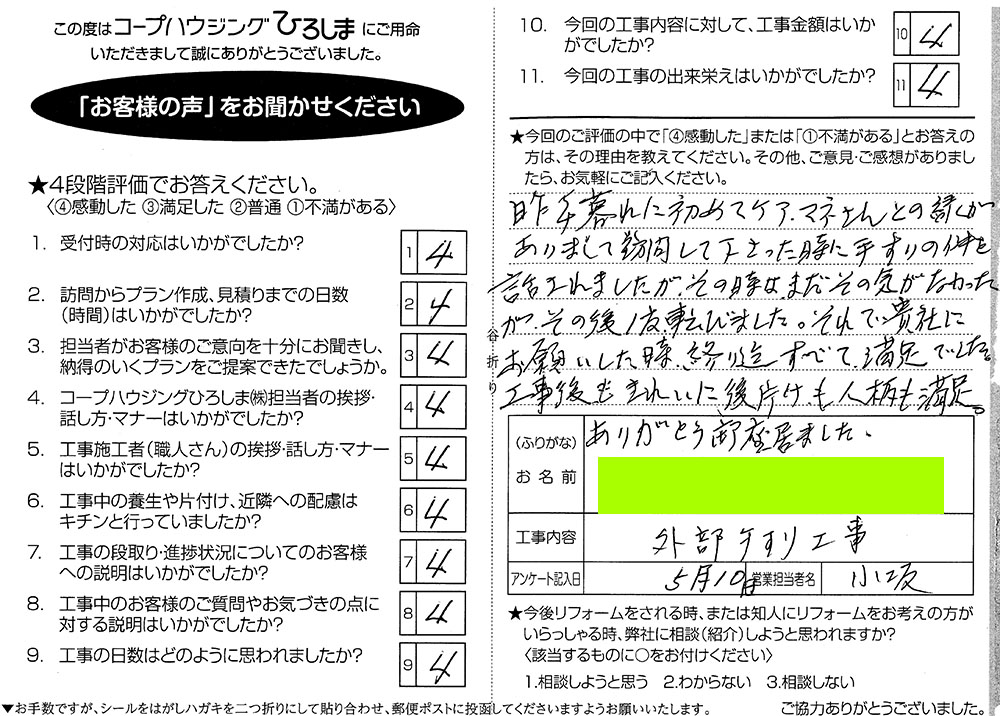 この度はコープハウジングひろしまにご用命
いただきまして誠にありがとうございました。
「お客様の声」をお聞かせください
★4段階評価でお答えください。
〈④感動した ③満足した ②普通 ①不満がある〉
1. 受付時の対応はいかがでしたか?
1 4
2. 訪問からプラン作成、見積りまでの日数
(時間)はいかがでしたか?
2 4
3. 担当者がお客様のご意向を十分にお聞きし、
納得のいくプランをご提案できたでしょうか。
3 4
4. コープハウジングひろしま㈱担当者の挨拶・
話し方・マナーはいかがでしたか?
4 4
5. 工事施工者(職人さん)の挨拶・話し方・マナー
はいかがでしたか?
5 4
6. 工事中の養生や片付け、近隣への配慮は
キチンと行っていましたか?
6 4
7. 工事の段取り・進捗状況についてのお客様
への説明はいかがでしたか?
7 4
8. 工事中のお客様のご質問やお気づきの点に
対する説明はいかがでしたか?
8 4
9. 工事の日数はどのように思われましたか?
9 4
10. 今回の工事内容に対して、工事金額はいか
がでしたか?
10 4
11. 今回の工事の出来栄えはいかがでしたか?
11 4
★今回のご評価の中で「④感動した」または「①不満がある」とお答えの
方は、その理由を教えてください。その他、ご意見・ご感想がありまし
たら、お気軽にご記入ください。
昨年暮れに初めてケア.マネさんとの縁が
ありまして訪問して下さった時に手すりの件を
話されましたが、その時はまだその気がなかった
が、その後1度転びました。それで貴社に
お願いした時、終り迄すべて満足でした。
工事後もきれいに後片付けも人柄も満足。
ありがとう御座居ました.
谷折り
(ふりがな)
お名前
工事内容
外部手すり工事
アンケート記入日
5月10日
営業担当者名
小坂
★今後リフォームをされる時、または知人にリフォームをお考えの方が
いらっしゃる時、弊社に相談(紹介)しようと思われますか?
〈該当するものに○をお付けください〉
1.相談しようと思う 2.わからない 3.相談しない
▼お手数ですが、シールをはがしハガキを二つ折りにして貼り合わせ、郵便ポストに投函してくださいますようお願いいたします。
ご協力ありがとうございました。